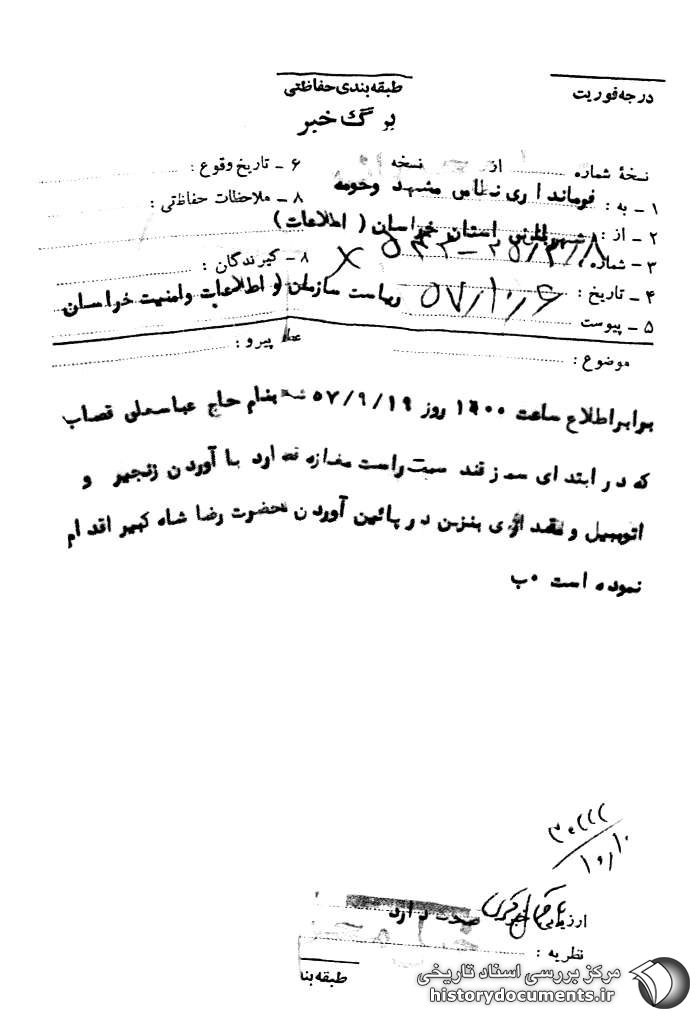 درجه فوریت
طبقه‌بندی حفاظتی
برگ خبر
نسخهٔ شماره از نسخه
۶ ـ تاریخ وقوع :
۱ ـ به : فرمانداری نظامی مشهد وحومه
۸ ـ ملاحظات حفاظتی :
۲ ـ از : شهربانی استان خراسان ( اطلاعات )
۳ ـ شماره
۸ ـ گیرندگان :
ریاست سازمان اطلاعات وامنیت خراسان
۴ ـ تاریخ : ۵۷/۱۰/۶
۵ ـ پیوست
پیرو :
موضوع :
برابراطلاع ساعت ۱۶۰۰ روز ۵۷/۹/۱۹ بنام حاج عباسعلی قصاب
که در ابتدای سمزقند سمت راست مغازه دارد با آوردن زنجیر و
اتومبیل و بنزین در پائین آوردن حضرت رضا شاه کبیر اقدام
نموده است ۰ب
۱۰/۱۰
ارزیابی خبر صحت دارد
نظریه :
طبقه‌بند
مرکز بررسی اسناد تاریخی
historydocuments.ir